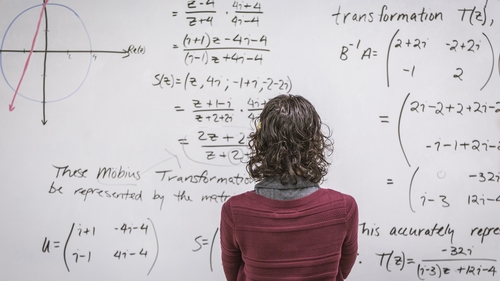 Re(z)
= z-4/z+4 · 4i+4/4i-4
= (i+1)z-4i-4/(i-1)z+4i-4
S(z)=(z, 4i; -1+i, -2-2i)
= z+1-i/z+2+2i
= 2z+2
z+(2
These Mobius Transforma
be represented by the mat
U=(i+1 -4i-4
i-1 4i-4)
S=(
transformation T(z),
B⁻¹A=(2+2i -2+2i
-1 2)
=(2i-2+2+2i-2
-i-1+2i-2
=( -32i
i-3 12i-4
This accurately repre
T(z)= -32i/(i-3)z+12i-4